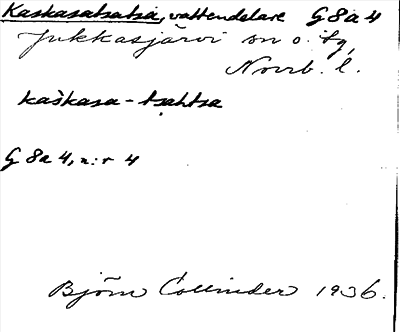 Kaskasatsatsa, vattendelare G8a4
Jukkasjärvi sn o. tg,
Norrb. l.
kaškasa-tsahtsa
G 8a 4, n:r 4
Björn Collinder 1936.